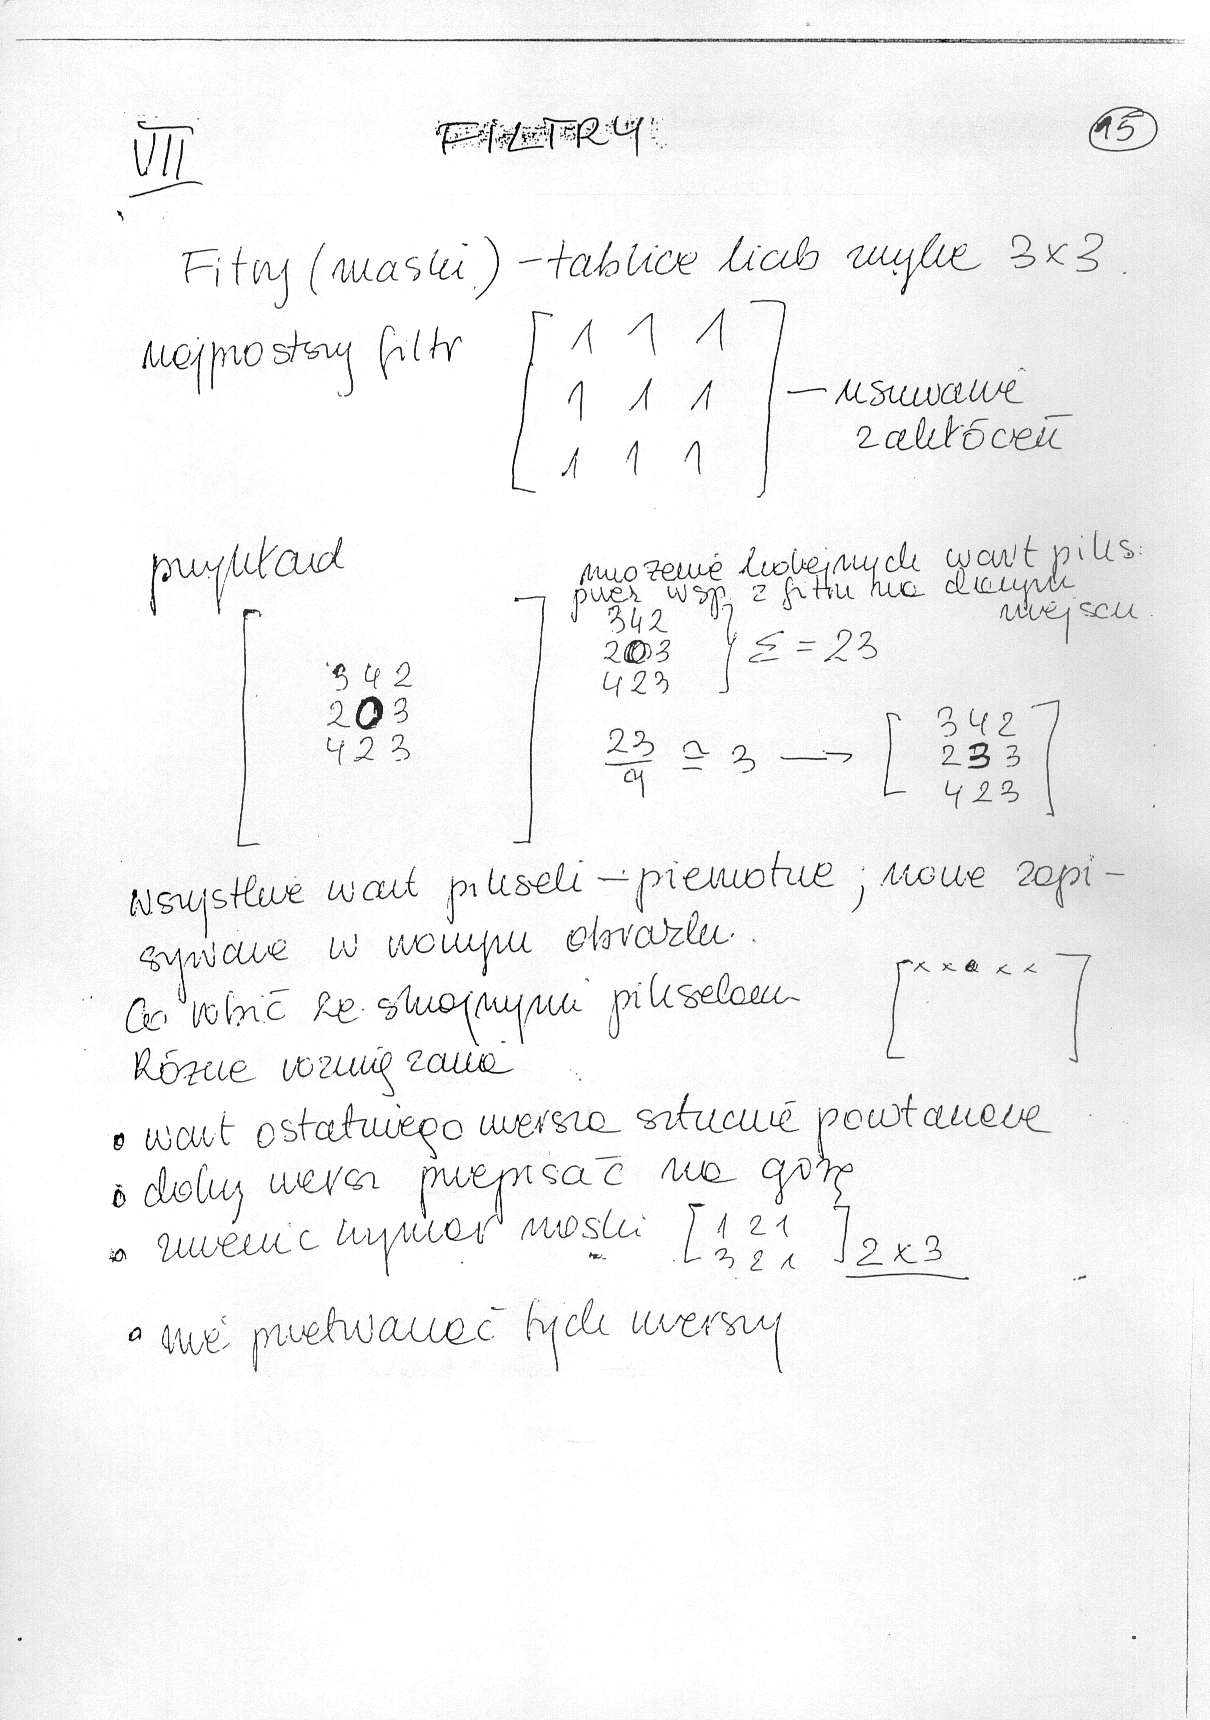 VII
FILTRY
15
Fitry (maski) - tablice liczb zwykle 3x3.
najprostszy filtr
1 1 1
1 1 1 - usuwanie
1 1 1 zakłóceń
przykład
mnożenie kolejnych wart piks.
przez wsp. z filtru na danym
miejscu.
3 4 2
2 0 3
4 2 3
3 4 2
2 0 3
4 2 3
Σ = 23
23/9 ≅ 3 →
3 4 2
2 3 3
4 2 3
wszystkie wart pikseli - pierwotne; nowe zapi-
sywane w nowym obrazku.
x x x x x
Co robić ze skrajnymi pikselami
Różne rozwiązania
• wart ostatniego wiersza sztucznie powtarzane
• dolny wiersz przepisać na górę
• zmienić wymiar maski [1 2 1
3 2 1] 2x3
• nie przetwarzać tych wierszy